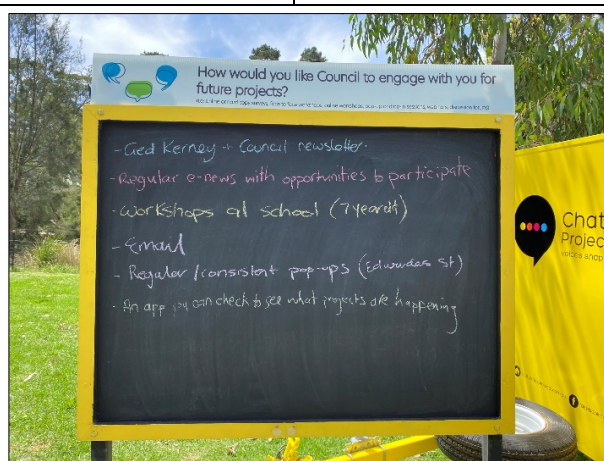 How would you like Council to engage with you for
future projects?
- Ged Kerney + Council newsletter.
- Regular e-news with opportunities to participate
- Workshops at school (7yearolt)
- Email
- Regular/consistent pop-ups (Edwardes St)
- An app you can check to see what projects are happening
Chat
Projec